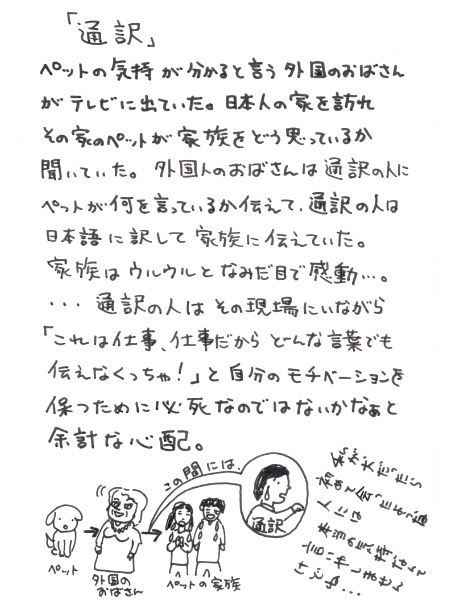 「通訳」
ペットの気持が分かると言う外国のおばさん
がテレビに出ていた。日本人の家を訪れ
その家のペットが家族をどう思っているか
聞いていた。外国人のおばさんは通訳の人に
ペットが何を言っているか伝えて、通訳の人は
日本語に訳して家族に伝えていた。
家族はウルウルとなみだ目で感動…。
・・・通訳の人はその現場にいながら
「これは仕事、仕事だからどんな言葉でも
伝えなくっちゃ!」と自分のモチベーションを
保つために必死なのではないかなぁと
余計な心配。
この間には、
通訳
ペット
外国の
おばさん
ペットの家族